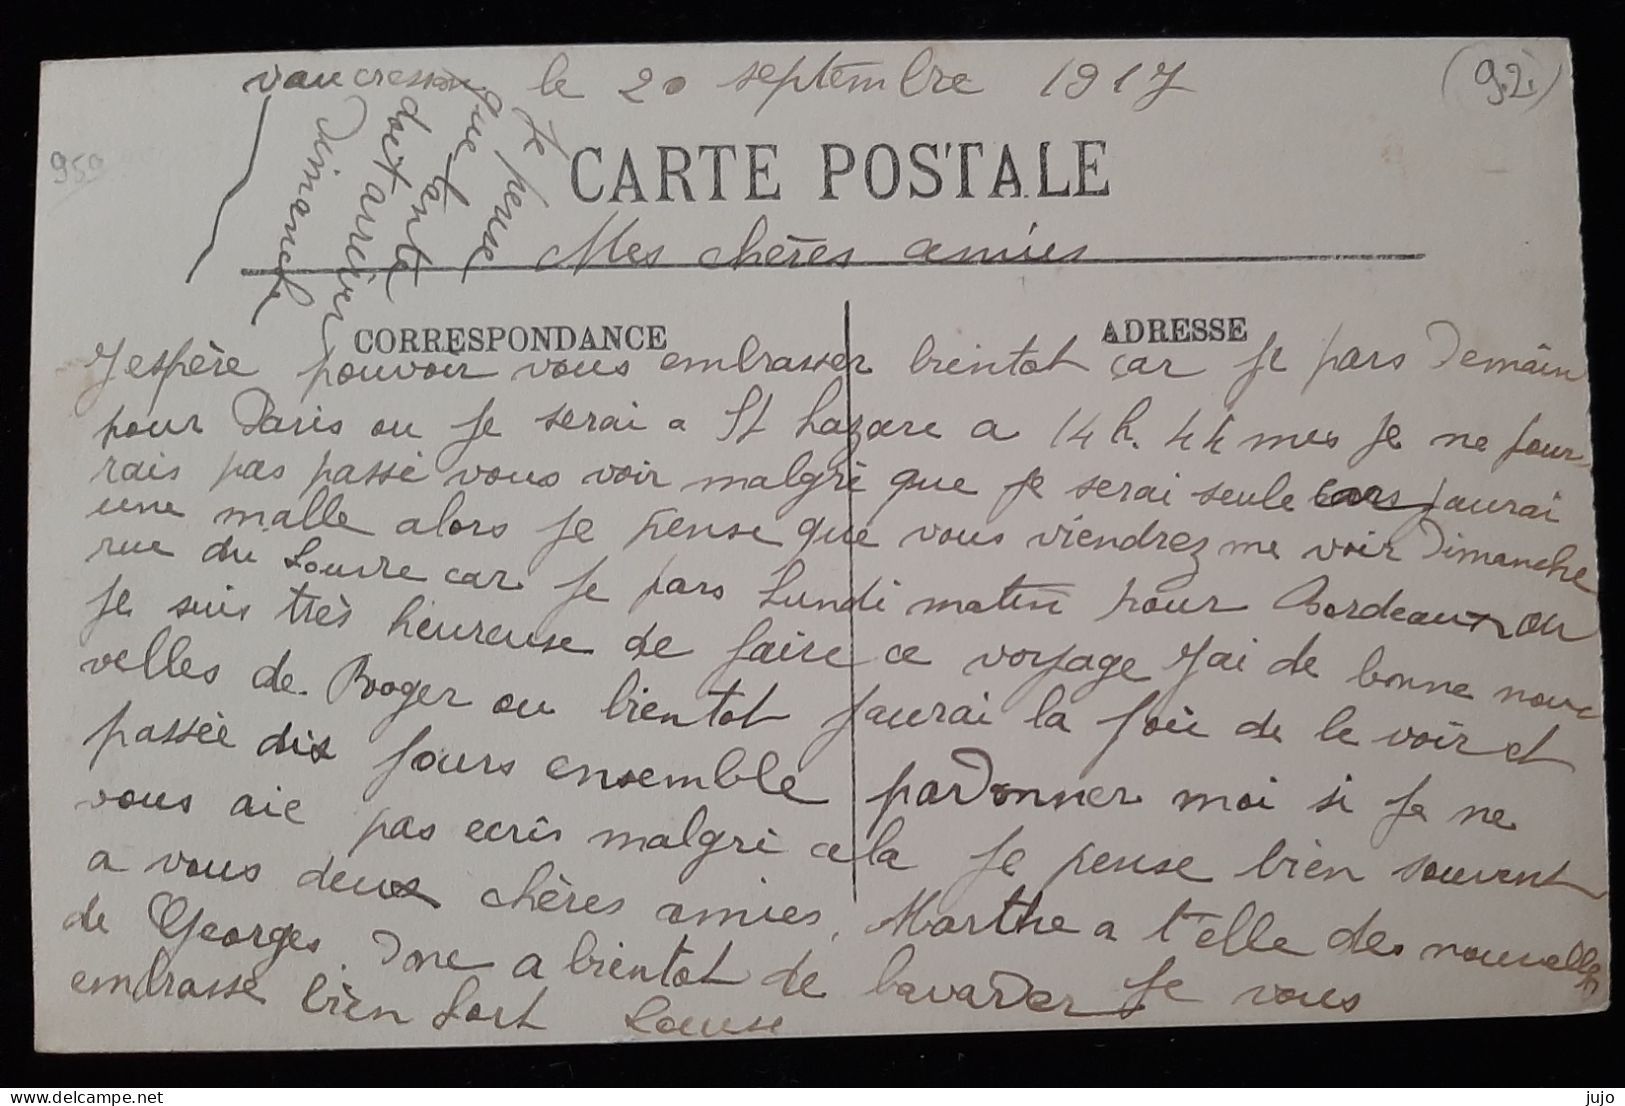 vaucresson le 20 septembre 1917
(92)
959
Je pense
que tante
doit arriver
Dimanche
CARTE POSTALE
Mes chères amies
CORRESPONDANCE
ADRESSE
J'espère pouvoir vous embrasser bientot car je pars Demain
pour Paris ou je serai a St Lazare a 14 h. 44 mes je ne pour
rais pas passé vous voir malgré que je serai seule cars j'aurai
une malle alors je pense que vous viendrez me voir Dimanche
rue du Louvre car je pars Lundi matin pour Bordeaux ou
je suis très heureuse de faire ce voyage J'ai de bonne nou
velles de Roger ou bientot j'aurai la joie de le voir et
passée dix jours ensemble pardonner moi si je ne
vous aie pas ecris malgré cela je pense bien souvent
a vous deux chères amies, Marthe a t'elle des nouvelles
de Georges. Donc a bientot de bavarder je vous
embrasse bien fort Louise
delcampe.net
jujo